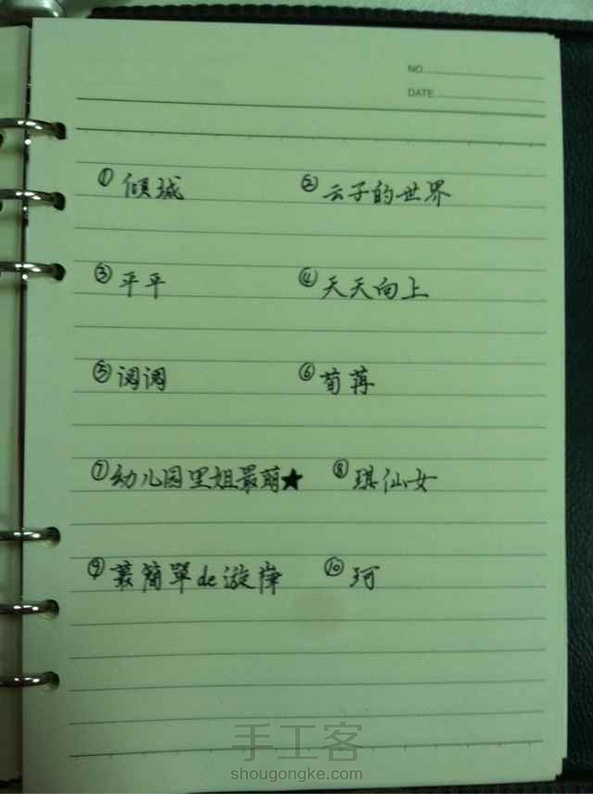 NO
DATE
①倾城 ②云子的世界
③平平 ④天天向上
⑤调调 ⑥荀苒
⑦幼儿园里姐最萌★ ⑧琪仙女
⑨蕞簡單de漩 ⑩珂
手工客
shougongke.com